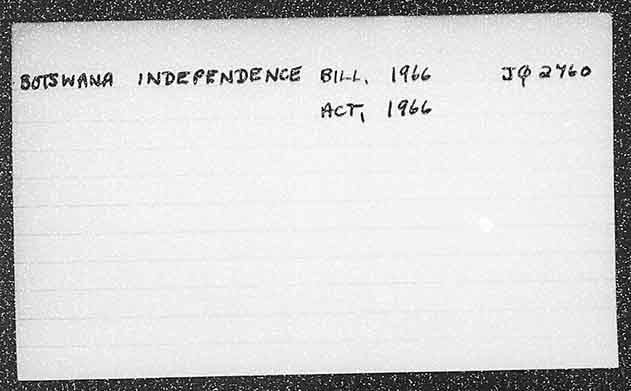 BOTSWANA INDEPENDENCE BILL, 1966 JQ 2760
ACT, 1966